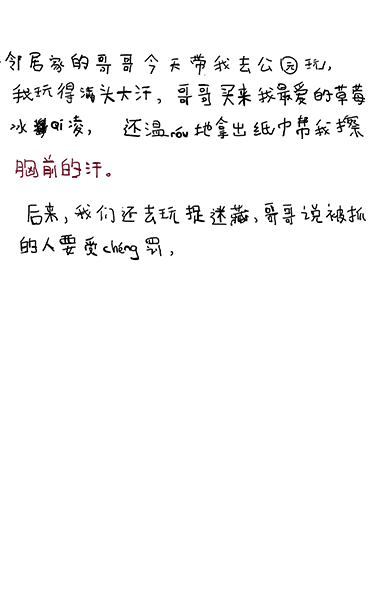 邻居家的哥哥今天带我去公园玩,
我玩得满头大汗,哥哥买来我最爱的草莓
冰qi凌,还温róu地拿出纸巾帮我擦
胸前的汗。
后来,我们还去玩捉迷藏,哥哥说被抓
的人要受chéng罚,